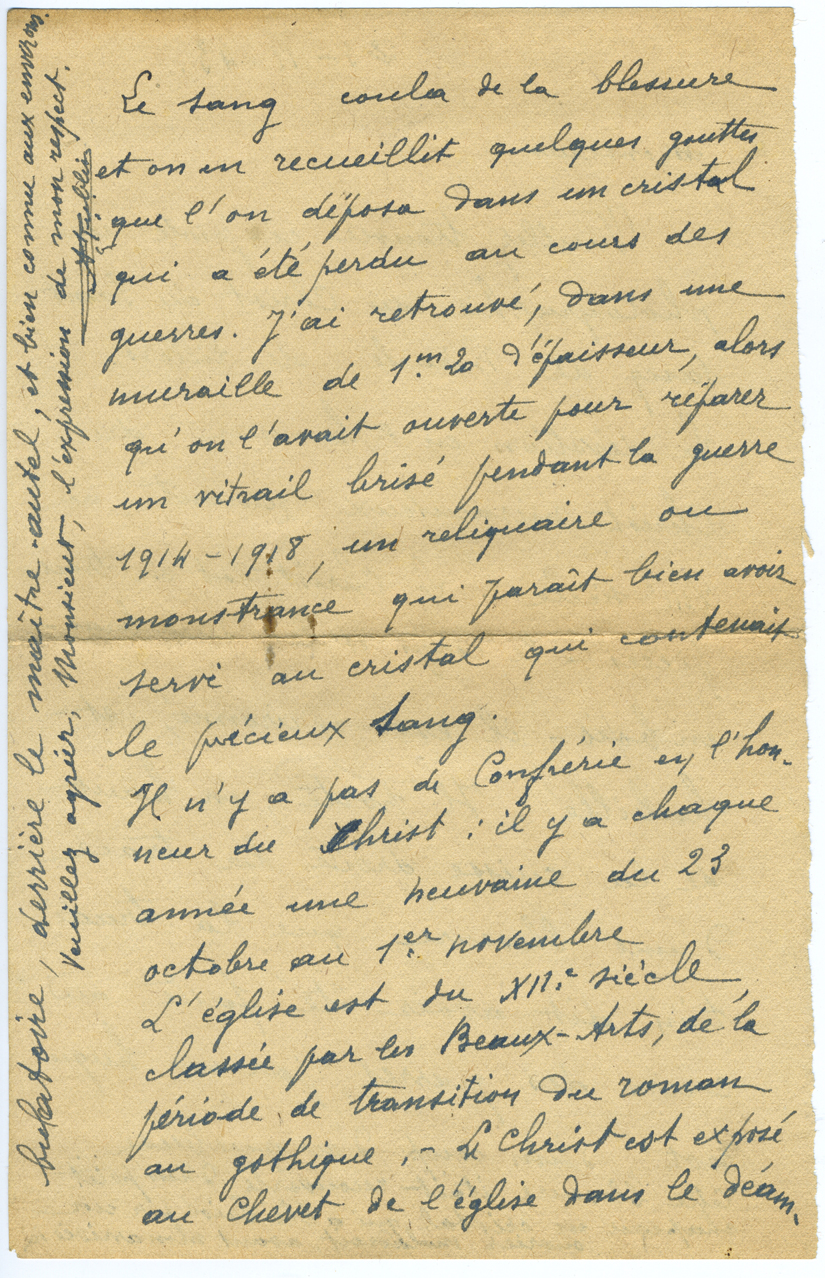 Le sang coula de la blessure
et on en recueillit quelques gouttes
que l'on déposa dans un cristal
qui a été perdu au cours des
guerres. J'ai retrouvé, dans une
muraille de 1m.20 d'épaisseur, alors
qu'on l'avait ouverte pour réparer
un vitrail brisé pendant la guerre
1914-1918, un reliquaire ou
monstrance qui paraît bien avoir
servi au cristal qui contenait
le précieux Sang.
Il n'y a pas de Confrérie en l'hon-
neur du Christ : il y a chaque
année une neuvaine du 23
octobre au 1er novembre
L'église est du XIIe siècle,
classée par les Beaux-Arts, de la
période de transition du roman
au gothique. - Le Christ est exposé
au chevet de l'église dans le déam-
bulatoire, derrière le maître-autel, et bien connu aux environs.
Veuillez agréer, Monsieur, l'expression de mon respect.